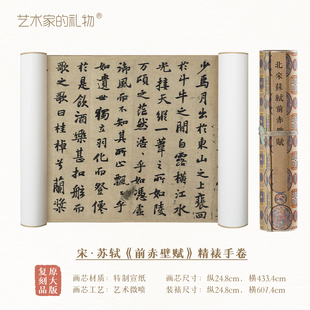 艺术家的礼物®
少焉月出於東山之上裵回
於斗牛之間白露橫江水
光接天縱一葦之所如陵
萬頃之茫然浩〻乎如憑虛
御風而不知其所止飄〻
乎如遺世獨立羽化而登僊
於是飲酒樂甚扣舷而
歌之歌曰桂棹兮蘭槳
北宋蘇軾前赤壁賦
宋·苏轼《前赤壁赋》精裱手卷
原大版
复刻品
画芯材质：特制宣纸
画芯尺寸：纵24.8cm，横433.4cm
画芯工艺：艺术微喷
装裱尺寸：纵24.8cm，横607.4cm